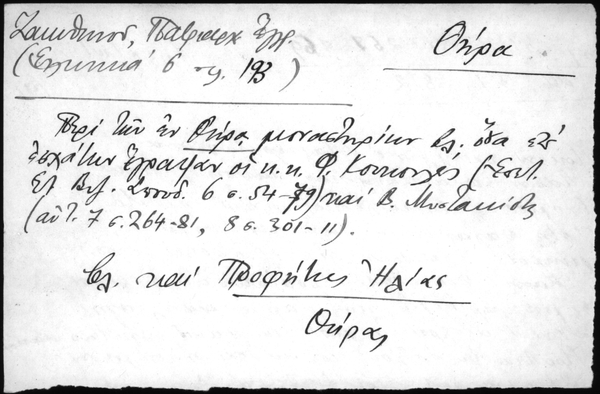 Ζακυθηνοῦ, Πατριαρχ. Ἔγγρ.
(Ἑλληνικά 6 σελ. 193)
Θήρα
Περί τῶν ἐν Θήρᾳ μοναστηρίων βλ. ὅσα ἐπ'
ἐσχάτων ἔγραψαν οἱ κ.κ. Φ. Κουκουλές (Ἐπετ.
Ἑτ. Βυζ. Σπουδ. 6 σ. 54-79) καί Β. Μυστακίδης
(αὐτ. 7 σ. 264-81, 8 σ. 301-11).
βλ. καί Προφήτης Ἠλίας
Θήρας